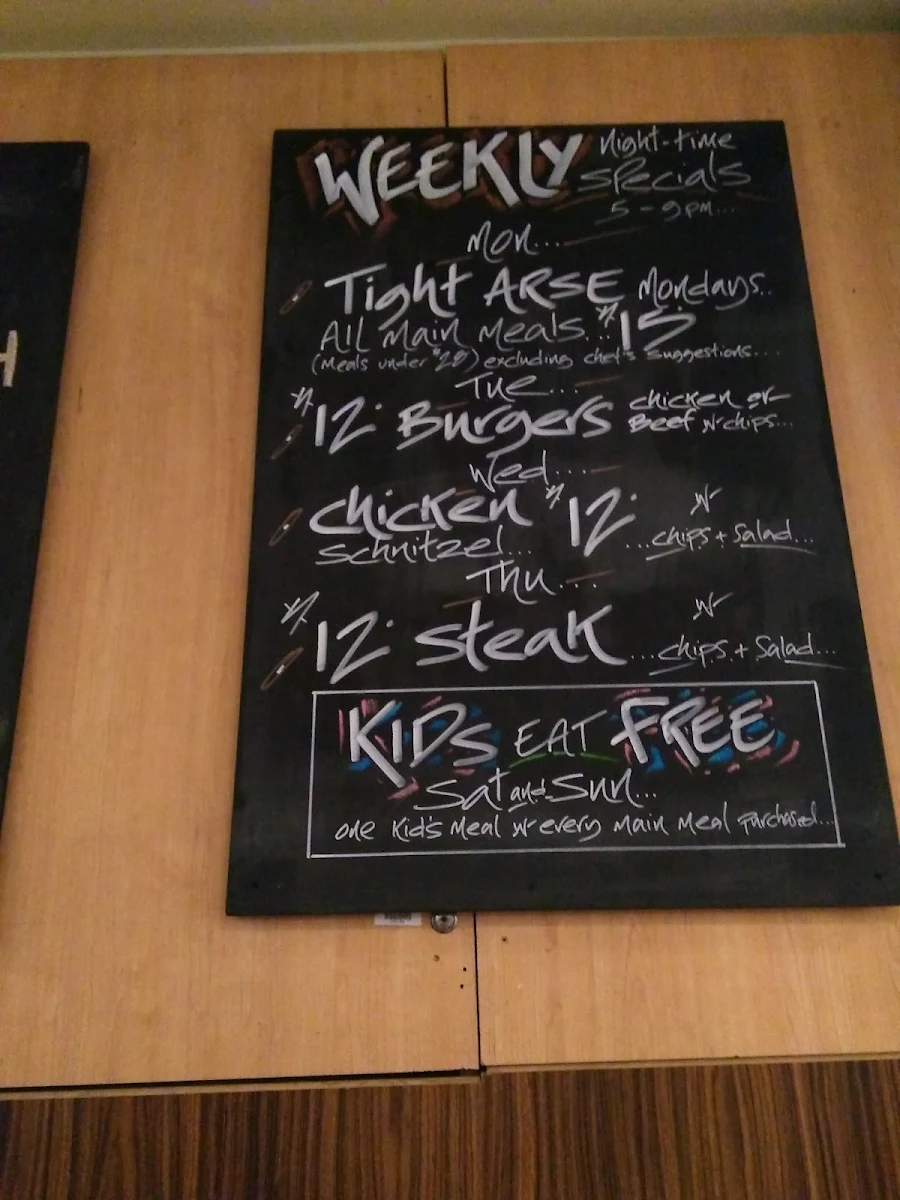 WEEKLY Night-time
specials
5 - 9 pm...
Mon...
Tight ARSE Mondays..
All main meals... $15
(Meals under $28) excluding chef's suggestions....
Tue...
$12. Burgers chicken or
Beef w chips...
Wed....
chicken $12. w
schnitzel... ...chips + salad...
Thu...
$12. steak w
...chips + salad...
KIDS EAT FREE
Sat and Sun...
one kid's meal w every main meal purchased...
H